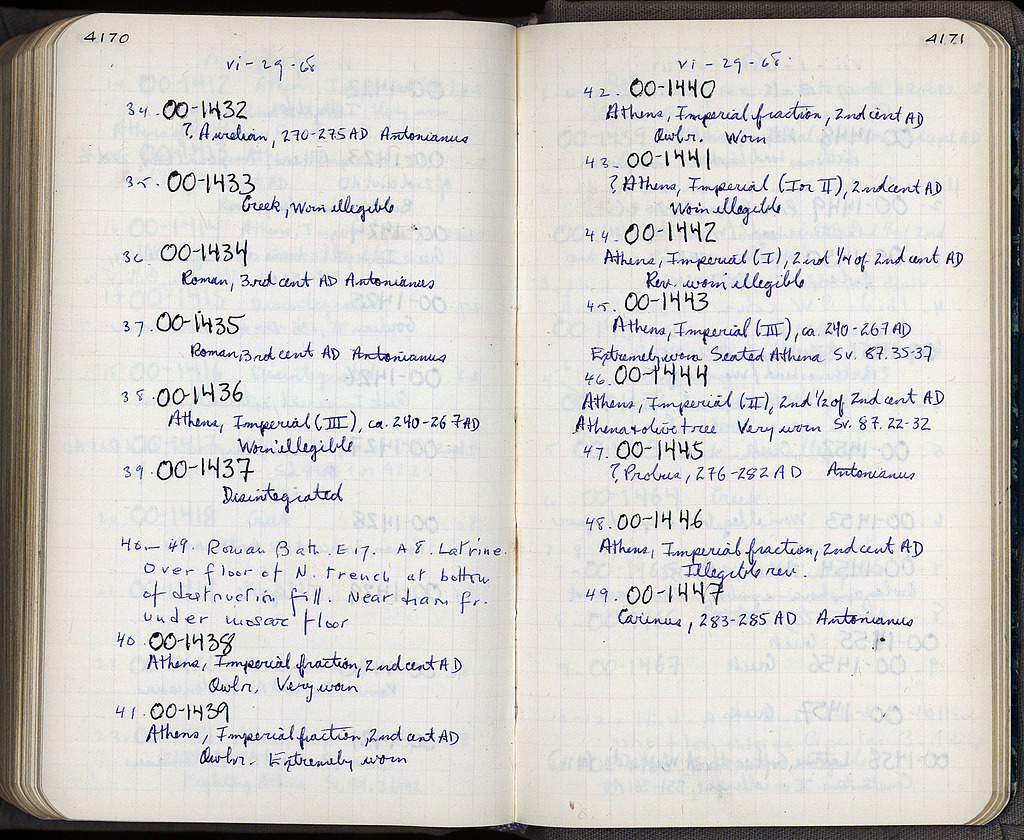 4170
vi-29-68
34. OO-1432
? Aurelian, 270-275 AD Antonianus
35. OO-1433
Greek, Worn illegible
36. OO-1434
Roman, 3rd cent AD Antonianus
37. OO-1435
Roman, 3rd cent AD Antonianus
38. OO-1436
Athens, Imperial (III), ca. 240-267 AD
Worn illegible
39. OO-1437
Disintegrated
40-49. Roman Bath. E 17. A 8. Latrine.
Over floor of N. trench at bottom
of destruction fill. Near
under mosaic floor
40 OO-1438
Athens, Imperial fraction, 2nd cent AD
Owl r. Very worn
41. OO-1439
Athens, Imperial fraction, 2nd cent AD
Extremely worn
4171
vi-29-68.
42. OO-1440
Athens, Imperial fraction, 2nd cent AD
Worn
43. OO-1441
? Athens, Imperial (I or II), 2nd cent AD
Worn illegible
44. OO-1442
Athens, Imperial (I), 2nd 1/4 of 2nd cent AD
Rev. worn illegible
45. OO-1443
Athens, Imperial (III), ca. 240-267 AD
Extremely worn Seated Athena Sv. 87.35-37
46. OO-1444
Athens, Imperial (II), 2nd 1/2 of 2nd cent AD
Athena & olive tree Very worn Sv. 87.22-32
47. OO-1445
? Probus, 276-282 AD Antonianus
48. OO-1446
Athens, Imperial fraction, 2nd cent AD
Illegible rev.
49. OO-1447
Carinus, 283-285 AD Antonianus